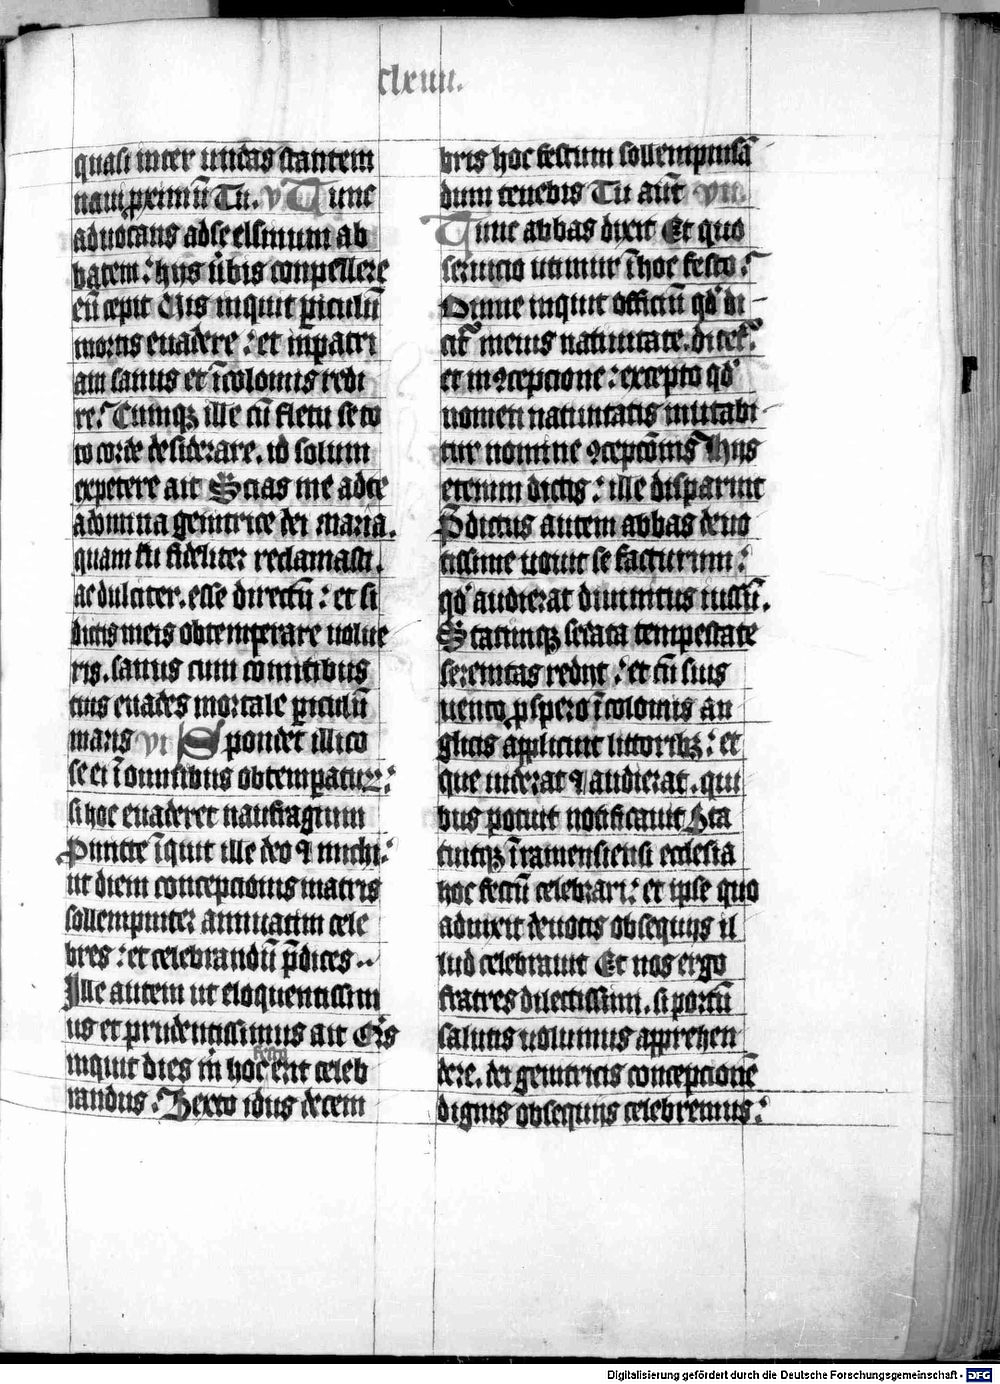 clxiiii.
quasi inter undas stantem
navi proximū Tu. v Tunc
advocans ad se elsinum ab
batem : hijs ūbis conpellere
eū cepit Vis inquit piculū
mortis euadere : et in patri
am sanus et īcolomis redi
re. Cumqȝ ille cū fletu se to
to corde desiderare. id solum
expetere ait Scias me ad te
a domina genitrice dei maria.
quam tu fideliter reclamasti.
ac dulciter. esse directū : et si
dictis meis obtemperare uolue
ris. sanus cum comitibus
tuis euades mortale piculū
maris vi Spondet illico
se ei ī omnibus obtempatuȝ :
si hoc euaderet naufragium
Puncte īquit ille deo ⁊ michi :
ut diem concepcionis matris
sollempniter annuatim cele
bres : et celebrandū p̄dices ..
Ille autem ut eloquentissim
us et prudentissimus ait Eis
festo
inquit dies in hoc erit celeb
randus : Sexto idus decem
bris hoc festum sollempnisā
dum tenebis Tu aūt vii.
Tunc abbas dixit Et quo
seruicio utimur ī hoc festo :
Omne inquit officiū qd' di
cit' meius natiuitate. dicet' :
et in ꝯcepcione : excepto qd'
nomen natiuitatis mutabi
tur nomine ꝯcepcōnis Hijs
eternim dictis : ille disparuit
P̄dictus autem abbas deuo
tissime uouit se facturum :
qd' audierat diuinitus iussū.
Statimqȝ sedata tempestate
serenitas redijt : et cū suis
uento pspero īcolomis an
glicis applicuit littoribȝ : et
que uiderat ⁊ audierat. qui
bus potuit notificauit Sta
tuitqȝ ī ramensiensi ecclesia
hoc festū celebrari : et ipse quo
aduixit deuotis obsequijs il
lud celebrauit Et nos ergo
fratres dilectissimi. si portū
salutis uolumus apprehen
dere. dei genitricis concepcionē
dignis obsequijs celebremus :
Digitalisierung gefördert durch die Deutsche Forschungsgemeinschaft - DFG